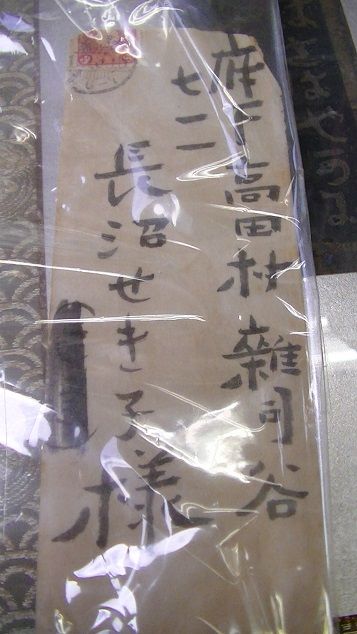 府下高田村雑司谷
七二
長沼せき子様